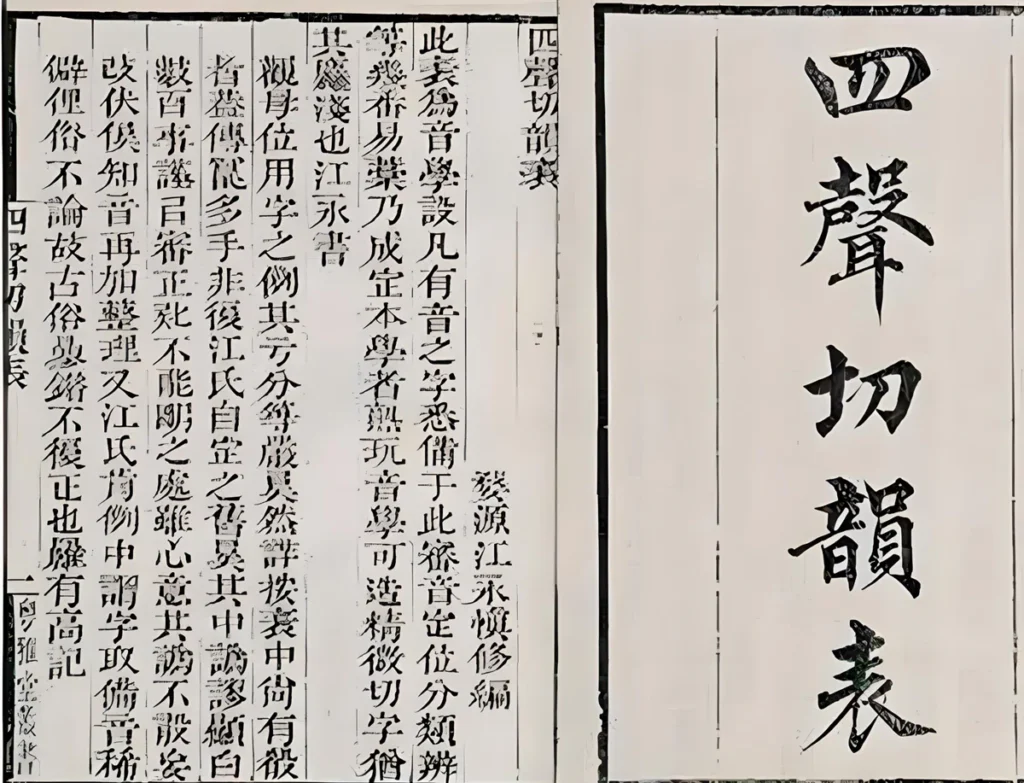 四聲切韻表
四聲切韻表
婺源江永慎修編
此表為音學設凡有音之字悉備于此審音定位分類辨
等幾番易藁乃成定本學者熟玩音學可造精微切字猶
其麤淺也江永書
觀母位用字之例其亏分等嚴矣然詳按表中尚有殽
者蓋傳寫多手非復江氏自定之舊矣其中譌謬顯白
數百事謹㠯審正不能明之處雖心意其譌不敢妄
改伏俟知音再加整理又江氏前例中謂字取備音稀
僻俚俗不論故古俗錯不復正也羅有高記
四聲切韻表
一
粵雅堂叢書